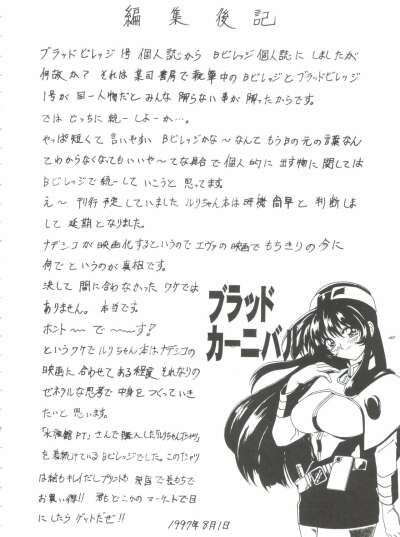 編集後記
ブラッドビレッジ1号 個人誌から Bビレッジ個人誌に しましたが
何故か? それは某司書房で執筆中のBビレッジとブラッドビレッジ
1号が同一人物だとみんな解らない事が解ったからです。
では どっちに統一しよーか…。
やっぱ短くて言いやすい Bビレッジかな〜なんて もうBの元の言葉なん
てわからなくなってもいいや〜てな具合で個人的に出す物に関しては
Bビレッジで統一して いこうと 思ってます。
え〜 刊行予定していました ルリちゃん本は時機尚早と判断しま
して 延期となりました。
ナデシコが映画化するというのでエヴァの映画でもちきりの今に
何でというのが真相です。
決して間に合わなかったワケでは
ありません。 本当です。
ホント〜で〜〜す!
というワケでルリちゃん本はナデシコの
映画に合わせてある程度それなりの
ゼネラルな思考で中身をつくっていき
たいと思います。
さんで購入した「ルリちゃんTシャツ」
を着続けているBビレッジでした。このTシャツ
は絵もキレイだしプリントも 長もちで
お買い得!! 君もどこかのマーケットで目
にしたらゲットだぜ!!
1997年8月1日
ブラッド
カーニバル